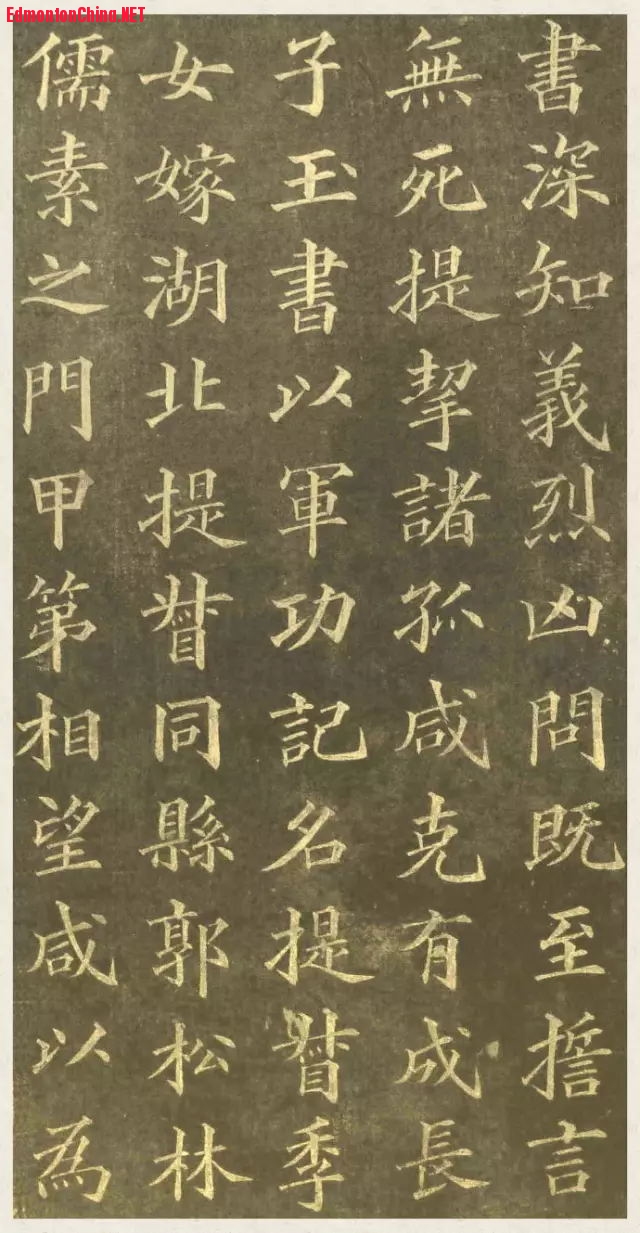 EdmontonChina.NET
書深知義烈凶問既至擔言
無死提挈諸孤咸克有成長
子玉書以軍功記名提督季
女嫁湖北提督同縣郭松林
儒素之門甲第相望咸以為